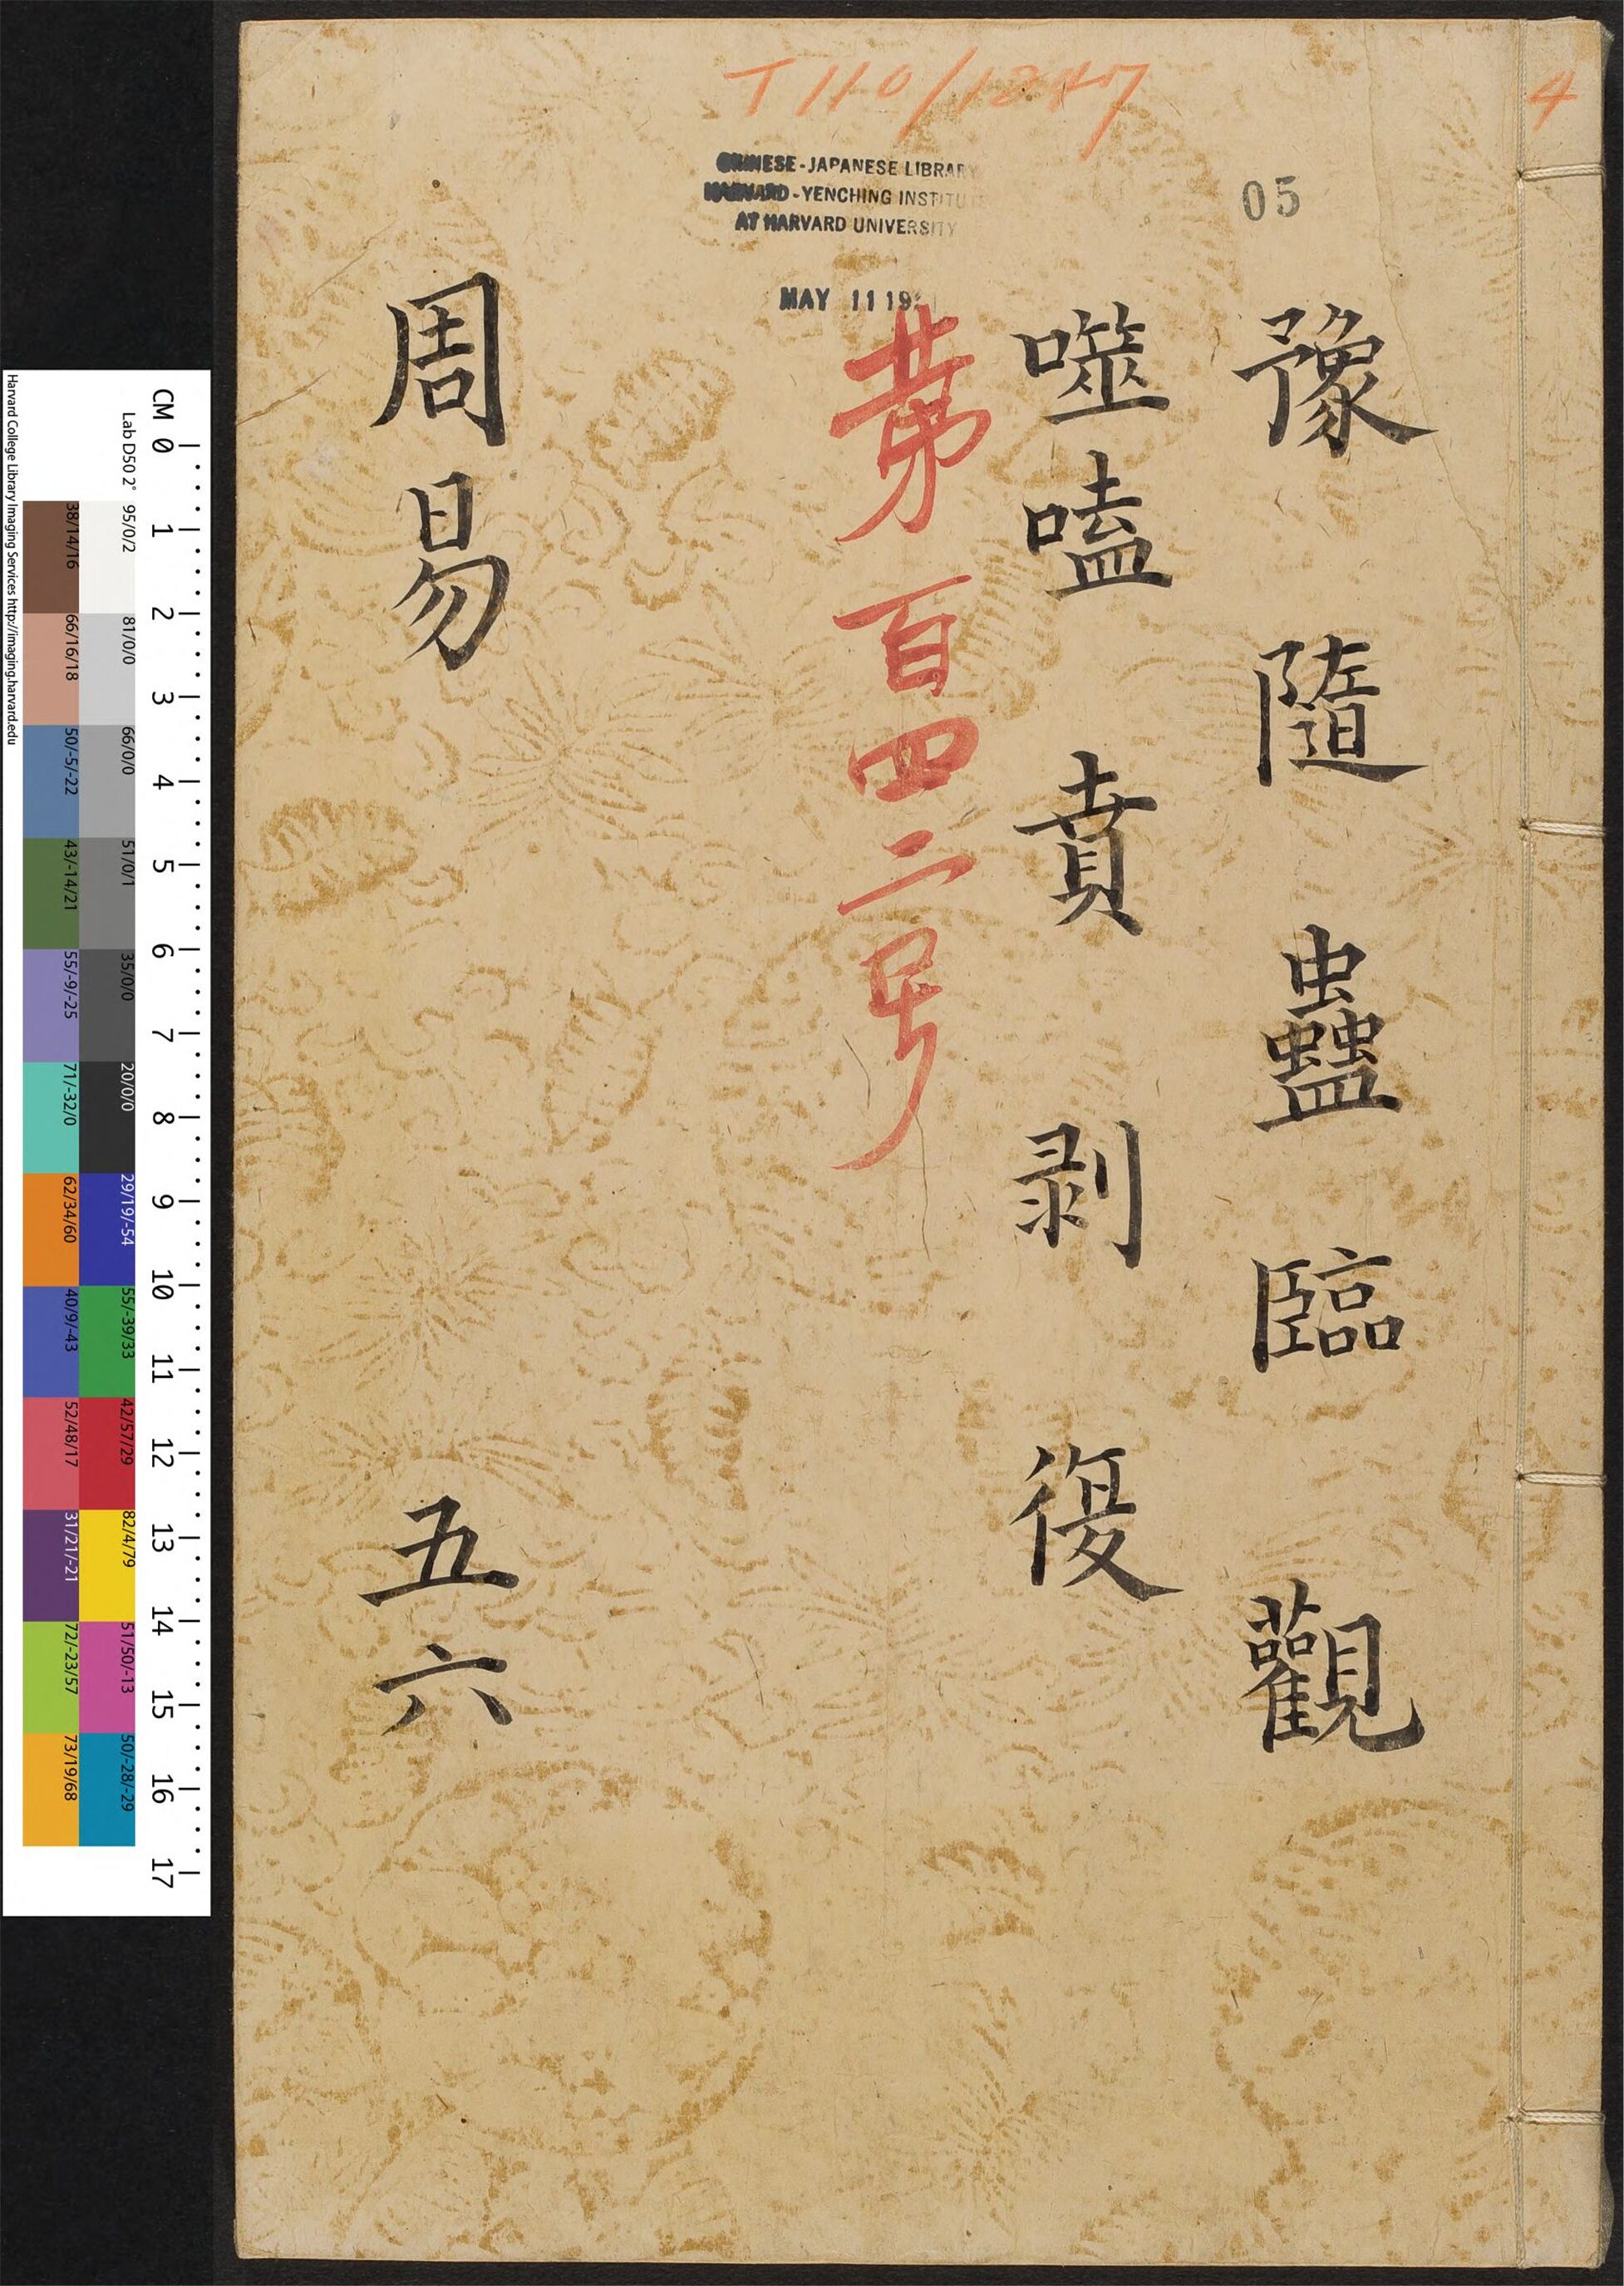 T 110/1247
4
CHINESE-JAPANESE LIBRARY
HARVARD-YENCHING INSTITU
AT HARVARD UNIVERSITY
05
MAY 11 19
豫 隨 蠱 臨 觀
噬嗑 賁 剥 復
第百四二号
周易 五六
Harvard College Library Imaging Services http://imaging.harvard.edu
Lab D50 2°
CM 0 1 2 3 4 5 6 7 8 9 10 11 12 13 14 15 16 17
95/0/2 81/0/0 66/0/0 51/0/1 35/0/0 20/0/0 29/19/-54 55/-39/33 42/57/29 82/4/79 51/50/-13 50/-28/-29
38/14/16 66/16/18 50/-5/-22 43/-14/21 55/-9/-25 71/-32/0 62/34/60 40/9/-43 52/48/17 31/21/-21 72/-23/57 73/19/68